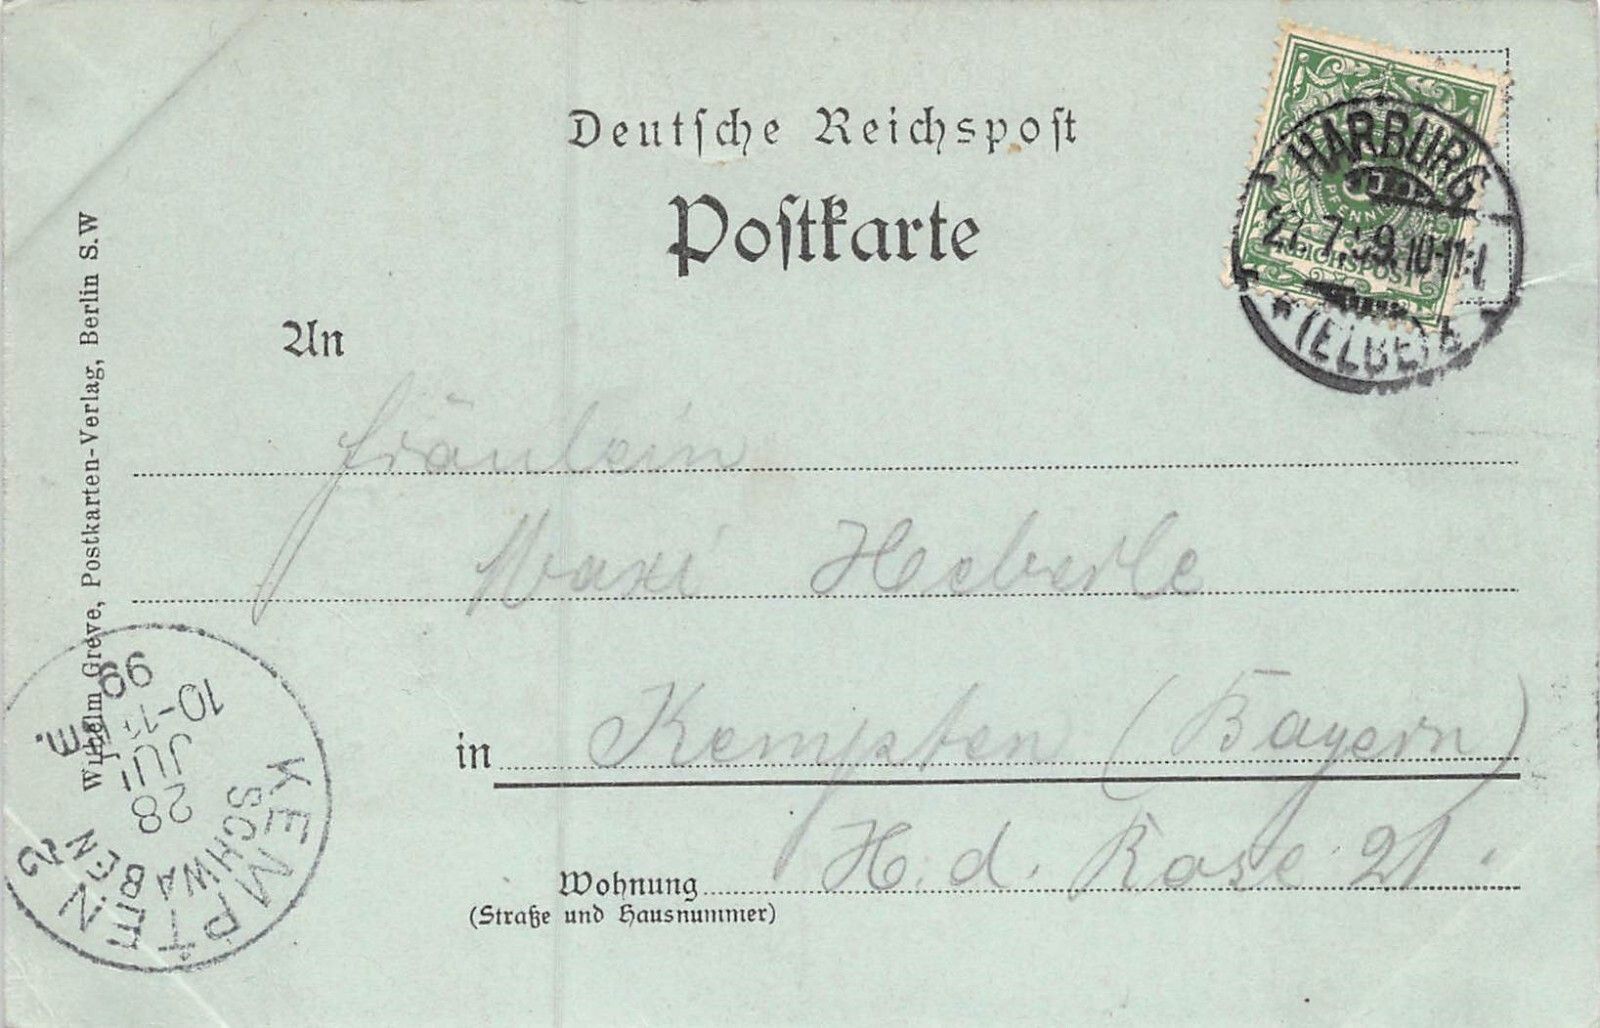 Deutsche Reichspost
Postkarte
An
Fräulein
Maxi Heberle
in Kempten (Bayern)
Wohnung H. d. Rose 21.
(Straße und Hausnummer)
Wilhelm Greve, Postkarten-Verlag, Berlin S.W
PFENNIG
REICHSPOST
HARBURG
27.7.99. 10-11
(ELBE)
KEMPTEN 2
SCHWABEN
28
JUL
10-11
99